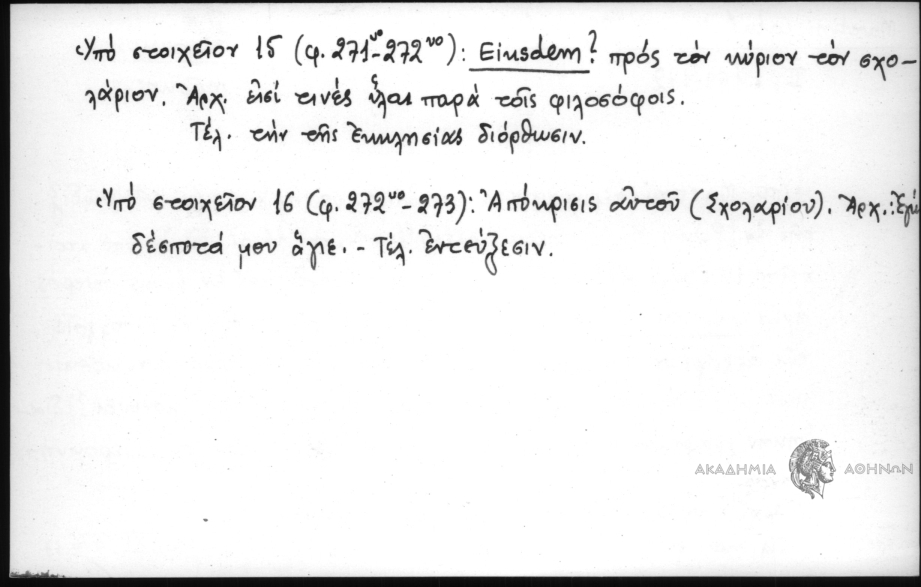 Ὑπό στοιχεῖον 15 (φ. 271νο-272νο): Eiusdem? πρός τόν κύριον τόν σχο-
λάριον. Ἀρχ. εἰσί τινές ὗλαι παρά τοῖς φιλοσόφοις.
Τέλ. τήν τῆς ἐκκλησίας διόρθωσιν.
Ὑπό στοιχεῖον 16 (φ. 272νο-273): Ἀπόκρισις αὐτοῦ (Σχολαρίου). Ἀρχ.: Ἐγώ
δέσποτά μου ἅγιε. - Τέλ. ἐντεύξεσιν.
ΑΚΑΔΗΜΙΑ ΑΘΗΝΩΝ